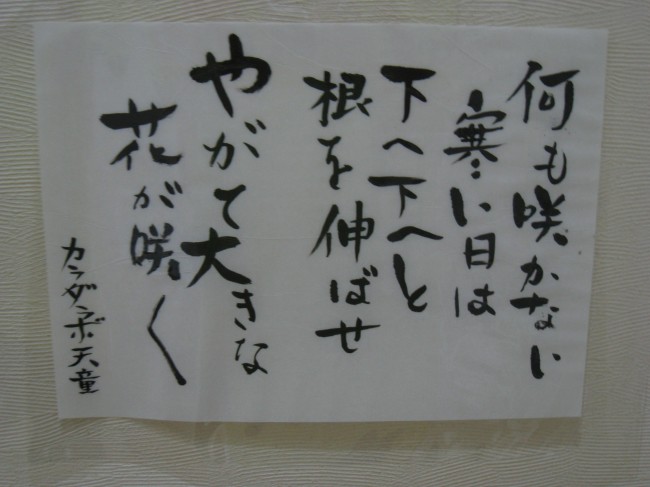 何も咲かない
寒い日は
下へ下へと
根を伸ばせ
やがて大きな
花が咲く
カラダラボ天童